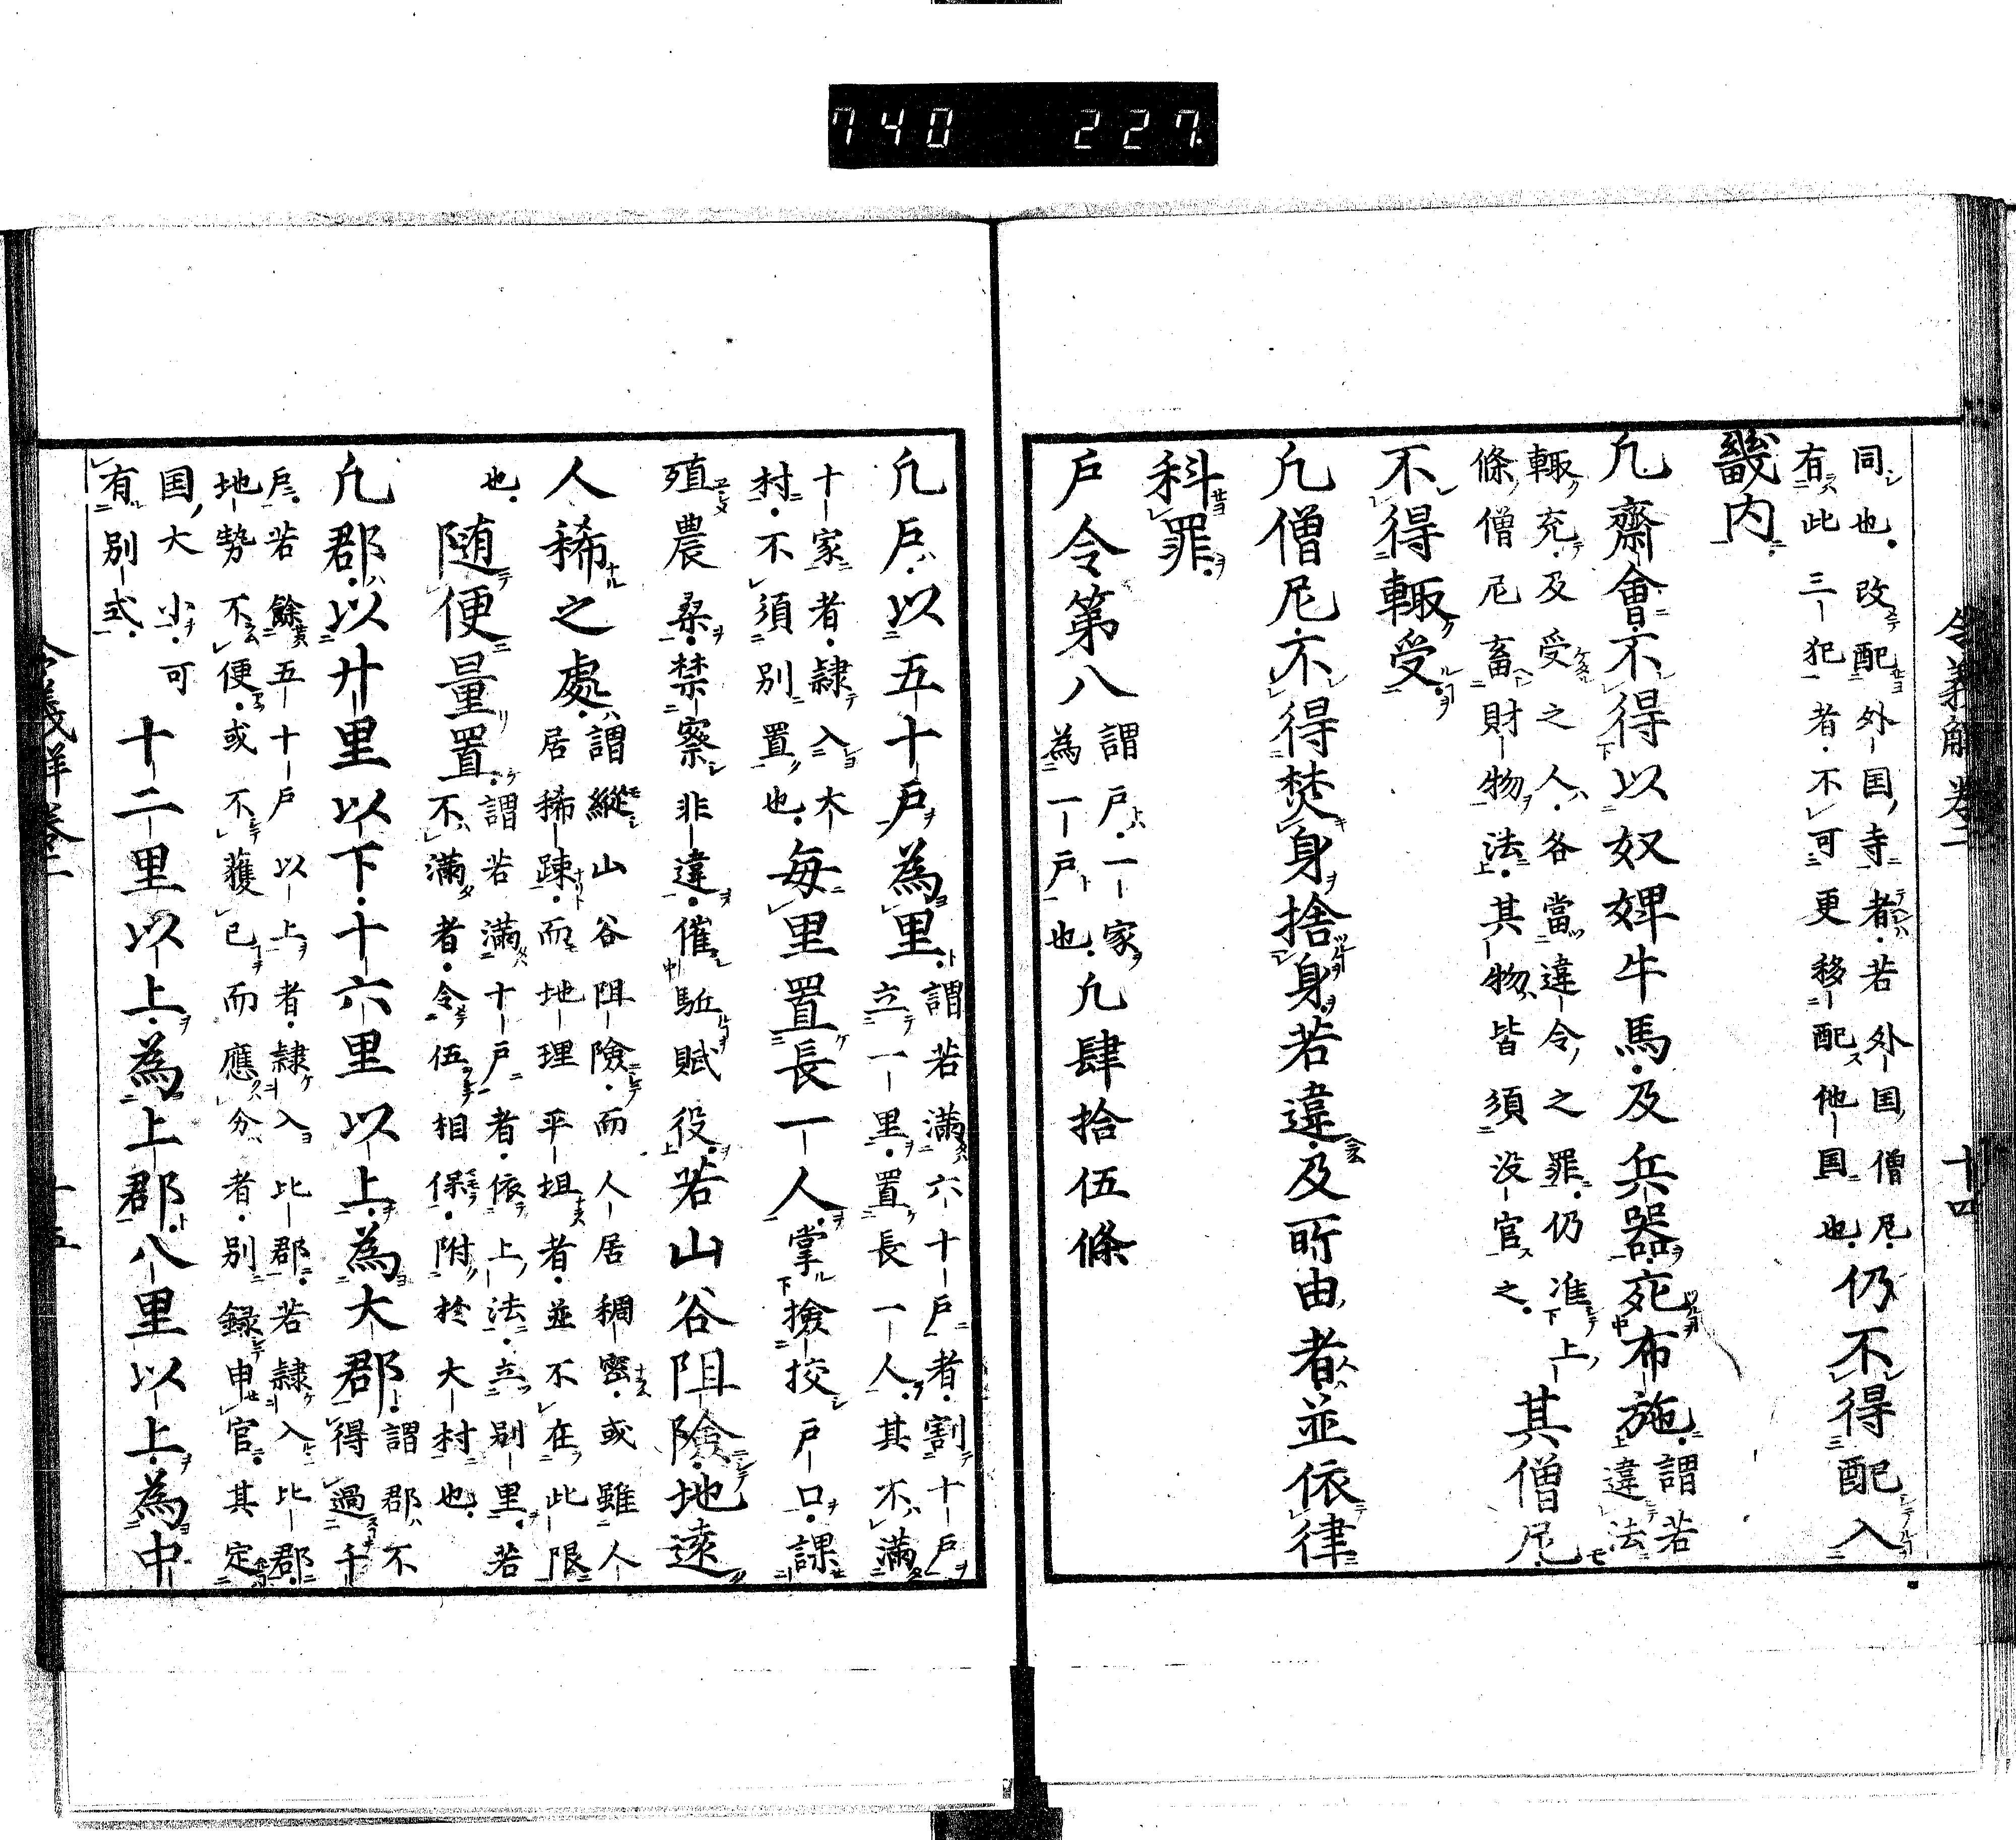 740 227
令義解卷二 十四
同也。改配外国寺者。若外国僧尼。
有此三犯者。不可更移配他国也。
仍不得配入
畿内。
凢齋會。不得以奴婢牛馬。及兵器。充布施。
謂若違法
輙充。及受之人。各當違令之罪。仍准上
條。僧尼畜財物法。其物皆須没官之。
其僧尼。
不得輙受
凢僧尼不得焚身捨身若違。及所由者並依律
科罪。
戶令第八
謂戶。一家
為一戶也。
凢肆拾伍條
凢戶。以五十戶為里。
謂若満六十戶者。割十戶
立一里。置長一人。其不満
十家者。隷入大
村。不須別置也。
每里置長一人。掌撿挍戶口。課
殖農桑。禁察非違。催駈賦役。若山谷阻險。地遠
人稀之處。
謂縱山谷阻險。而人居稠密。或雖人
居稀踈。而地理平坦者。並不在此限
也。
随便量置。
謂若満十戶者。依上法。立別里。若
不満者。令伍相保。附於大村也。
凢郡。以廿里以下。十六里以上。為大郡。
謂郡不
得過千
戶。若餘五十戶以上者。隷入比郡。若隷入比郡。
地勢不便。或不獲已而應分者。別録申官。其定
国大小。可
有別式。
十二里以上。為上郡。八里以上。為中